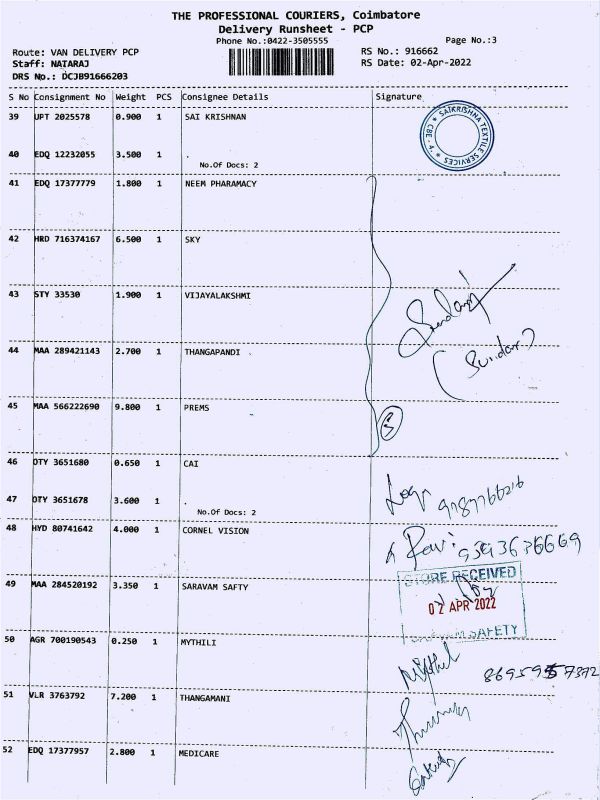 THE PROFESSIONAL COURIERS, Coimbatore
Delivery Runsheet - PCP
Phone No.:0422-3505555
Page No.:3
Route: VAN DELIVERY PCP
RS No.: 916662
Staff: NATARAJ
RS Date: 02-Apr-2022
DRS No.: DCJB91666203
S No Consignment No Weight PCS Consignee Details Signature
39 UPT 2025578 0.900 1 SAI KRISHNAN
SAIKRISHNA TEXTILE SERVICES
CBE - 4
40 EDQ 12232055 3.500 1 .
No.Of Docs: 2
41 EDQ 17377779 1.800 1 NEEM PHARAMACY
42 HRD 716374167 6.500 1 SKY
43 STY 33530 1.900 1 VIJAYALAKSHMI
44 MAA 289421143 2.700 1 THANGAPANDI
(Sundar)
45 MAA 566222690 9.800 1 PREMS
5
46 OTY 3651680 0.650 1 CAI
47 OTY 3651678 3.600 1 .
No.Of Docs: 2
48 HYD 80741642 4.000 1 CORNEL VISION
Ravi
STORE RECEIVED
49 MAA 284520192 3.350 1 SARAVAM SAFTY
02 APR 2022
SAFETY
50 AGR 700190543 0.250 1 MYTHILI
Mythil
51 VLR 3763792 7.200 1 THANGAMANI
52 EDQ 17377957 2.800 1 MEDICARE